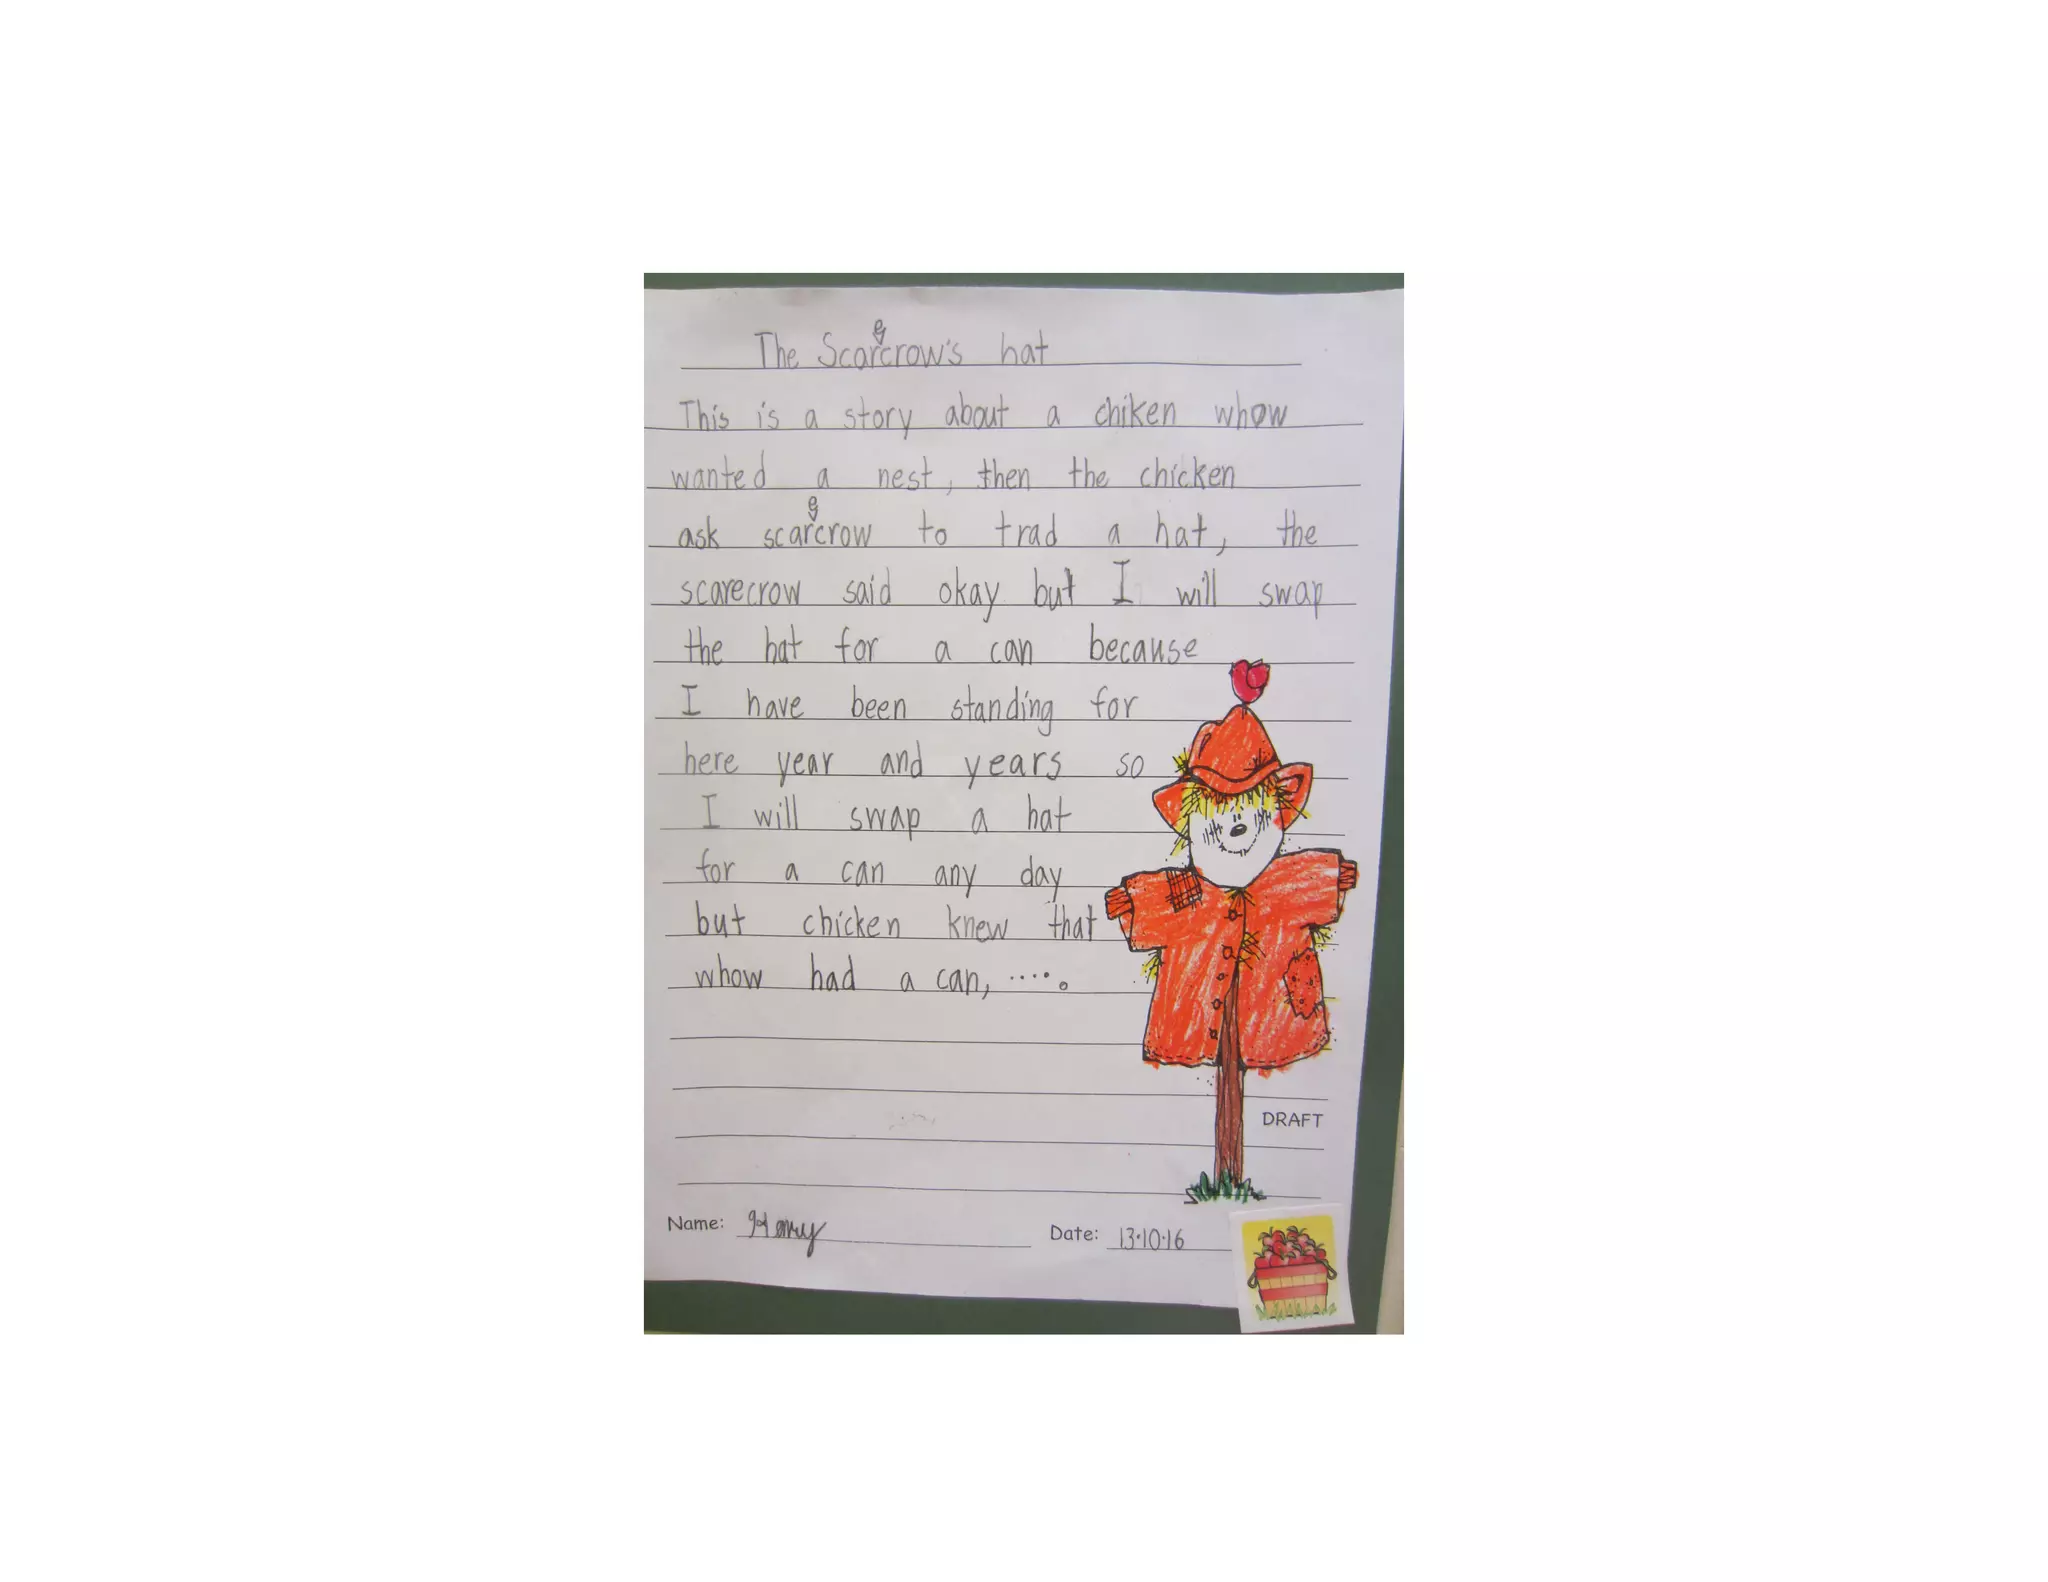 The Scarecrow's hat
This is a story about a chiken whow
wanted a nest, then the chicken
ask scarecrow to trad a hat, the
scarecrow said okay but I will swap
the hat for a can because
I have been standing for
here year and years so
I will swap a hat
for a can any day
but chicken knew that
whow had a can, .....
DRAFT
Name: Harry
Date: 13.10.16